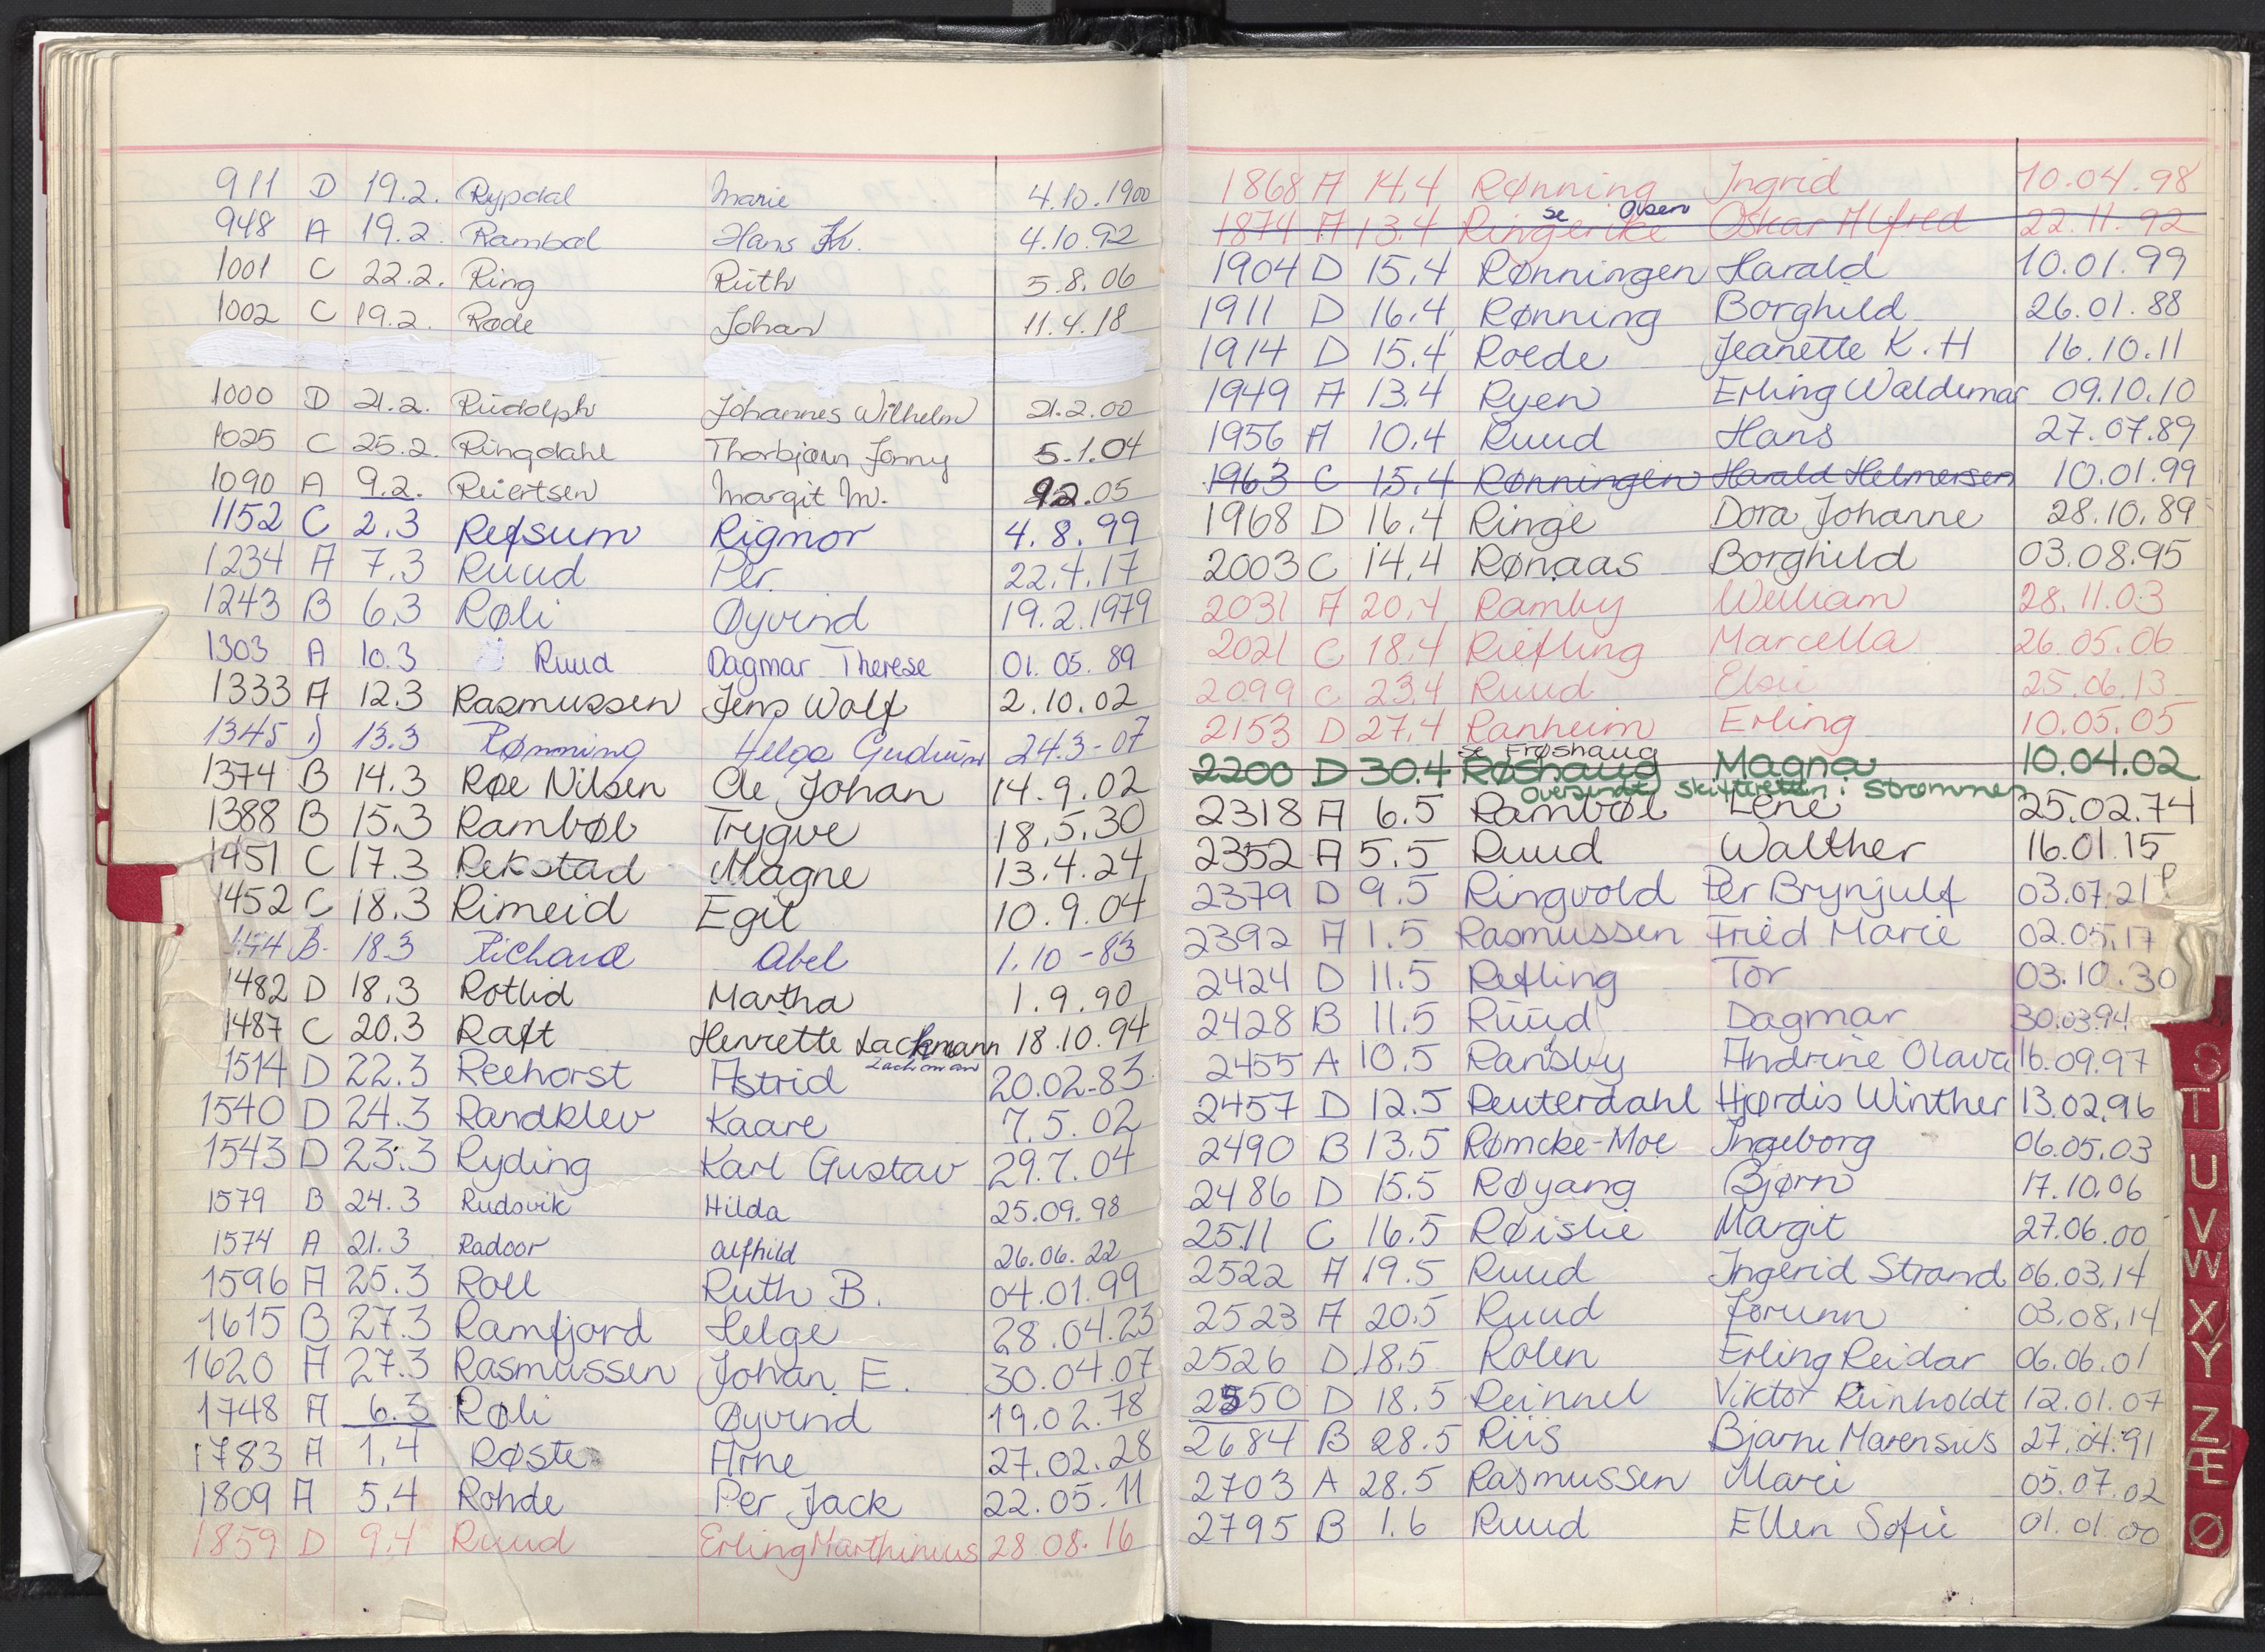 911 D 19.2. Rypdal Marie 4.10.1900
948 A 19.2. Rambøl Hans Kr. 4.10.92
1001 C 22.2. Ring Ruth 5.8.06
1002 C 19.2. Røde Johan 11.4.18
1000 D 21.2. Rudolph Johannes Wilhelm 21.2.00
1025 C 25.2. Ringdahl Thorbjørn Jonny 5.1.04
1090 A 9.2. Reiertsen Margit M. 9.2.05
1152 C 2.3 Refsum Rigmor 4.8.99
1234 A 7.3 Ruud Per 22.4.17
1243 B 6.3 Røli Øyvind 19.2.1979
1303 A 10.3 Ruud Dagmar Therese 01.05.89
1333 A 12.3 Rasmussen Jens Wolf 2.10.02
1345 D 13.3 Rønning Helga Gudrun 24.3-07
1374 B 14.3 Røe Nilsen Ole Johan 14.9.02
1388 B 15.3 Rambøl Trygve 18.5.30
1451 C 17.3 Rekstad Magne 13.4.24
1452 C 18.3 Rimeid Egil 10.9.04
B. 18.3 Richard Abel 1.10-83
1482 D 18.3 Rotlid Martha 1.9.90
1487 C 20.3 Raft Henriette Lachmann 18.10.94
Lachmann
1514 D 22.3 Reehorst Astrid 20.02-83
1540 D 24.3 Randklev Kaare 7.5.02
1543 D 23.3 Ryding Karl Gustav 29.7.04
1579 B 24.3 Rudsvik Hilda 25.09.98
1574 A 21.3 Radoor Alfhild 26.06.22
1596 A 25.3 Roll Ruth B. 04.01.99
1615 B 27.3 Ramfjord Helge 28.04.23
1620 A 27.3 Rasmussen Johan E. 30.04.07
1748 A 6.3 Røli Øyvind 19.02.78
1783 A 1.4 Røste Arne 27.02.28
1809 A 5.4 Rohde Per Jack 22.05.11
1859 D 9.4 Ruud Erling Marthinius 28.08.16
1868 A 14.4 Rønning Ingrid 10.04.98
se Olsen
1874 A 13.4 Ringerike Oskar Alfred 22.11.92
1904 D 15.4 Rønningen Harald 10.01.99
1911 D 16.4 Rønning Borghild 26.01.88
1914 D 15.4 Roede Jeanette K.H 16.10.11
1949 A 13.4 Ryen Erling Waldemar 09.10.10
1956 A 10.4 Ruud Hans 27.07.89
1963 C 15.4 Rønningen Harald Helmersen 10.01.99
1968 D 16.4 Ringe Dora Johanne 28.10.89
2003 C 14.4 Rønaas Borghild 03.08.95
2031 A 20.4 Ramby William 28.11.03
2021 C 18.4 Riefling Marcella 26.05.06
2099 C 23.4 Ruud Elsie 25.06.13
2153 D 27.4 Ranheim Erling 10.05.05
se Frøshaug
2200 D 30.4 Røshaug Magna 10.04.02
Oversendt Skifteretten i Strømmen
2318 A 6.5 Rambøl Lene 25.02.74
2352 A 5.5 Ruud Walther 16.01.15
2379 D 9.5 Ringvold Per Brynjulf 03.07.21
2392 A 1.5 Rasmussen Fried Marie 02.05.17
2424 D 11.5 Refling Tor 03.10.30
2428 B 11.5 Ruud Dagmar 30.03.94
2455 A 10.5 Ransby Andrine Olava 16.09.97
2457 D 12.5 Reuterdahl Hjørdis Winther 13.02.96
2490 B 13.5 Rømcke-Moe Ingeborg 06.05.03
2486 D 15.5 Røyang Bjørn 17.10.06
2511 C 16.5 Røislie Margit 27.06.00
2522 A 19.5 Ruud Ingerid Strand 06.03.14
2523 A 20.5 Ruud Jorunn 03.08.14
2526 D 18.5 Rolen Erling Reidar 06.06.01
2550 D 18.5 Reinnel Viktor Reinholdt 12.01.07
2684 B 28.5 Riis Bjarne Marensius 27.04.91
2703 A 28.5 Rasmussen Marie 05.07.02
2795 B 1.6 Ruud Ellen Sofie 01.01.00
S
T
U
V
W
X
Y
Z
Æ
Ø